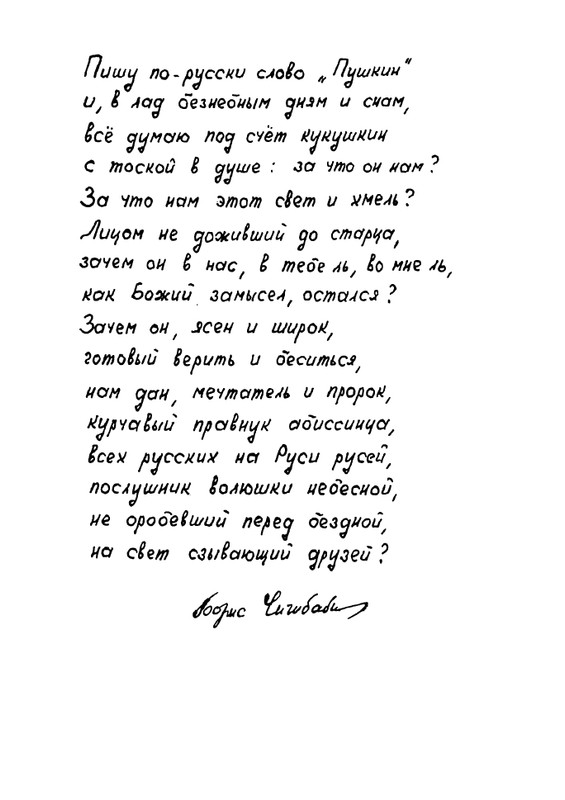 Пишу по-русски слово „Пушкин“
и, в лад безнебным дням и снам,
всё думаю под счёт кукушкин
с тоской в душе: за что он нам?
За что нам этот свет и хмель?
Лицом не доживший до старца,
зачем он в нас, в тебе ль, во мне ль,
как Божий замысел, остался?
Зачем он, ясен и широк,
готовый верить и беситься,
нам дан, мечтатель и пророк,
курчавый правнук абиссинца,
всех русских на Руси русей,
послушник волюшки небесной,
не оробевший перед бездной,
на свет сзывающий друзей?
Борис Чичибабин